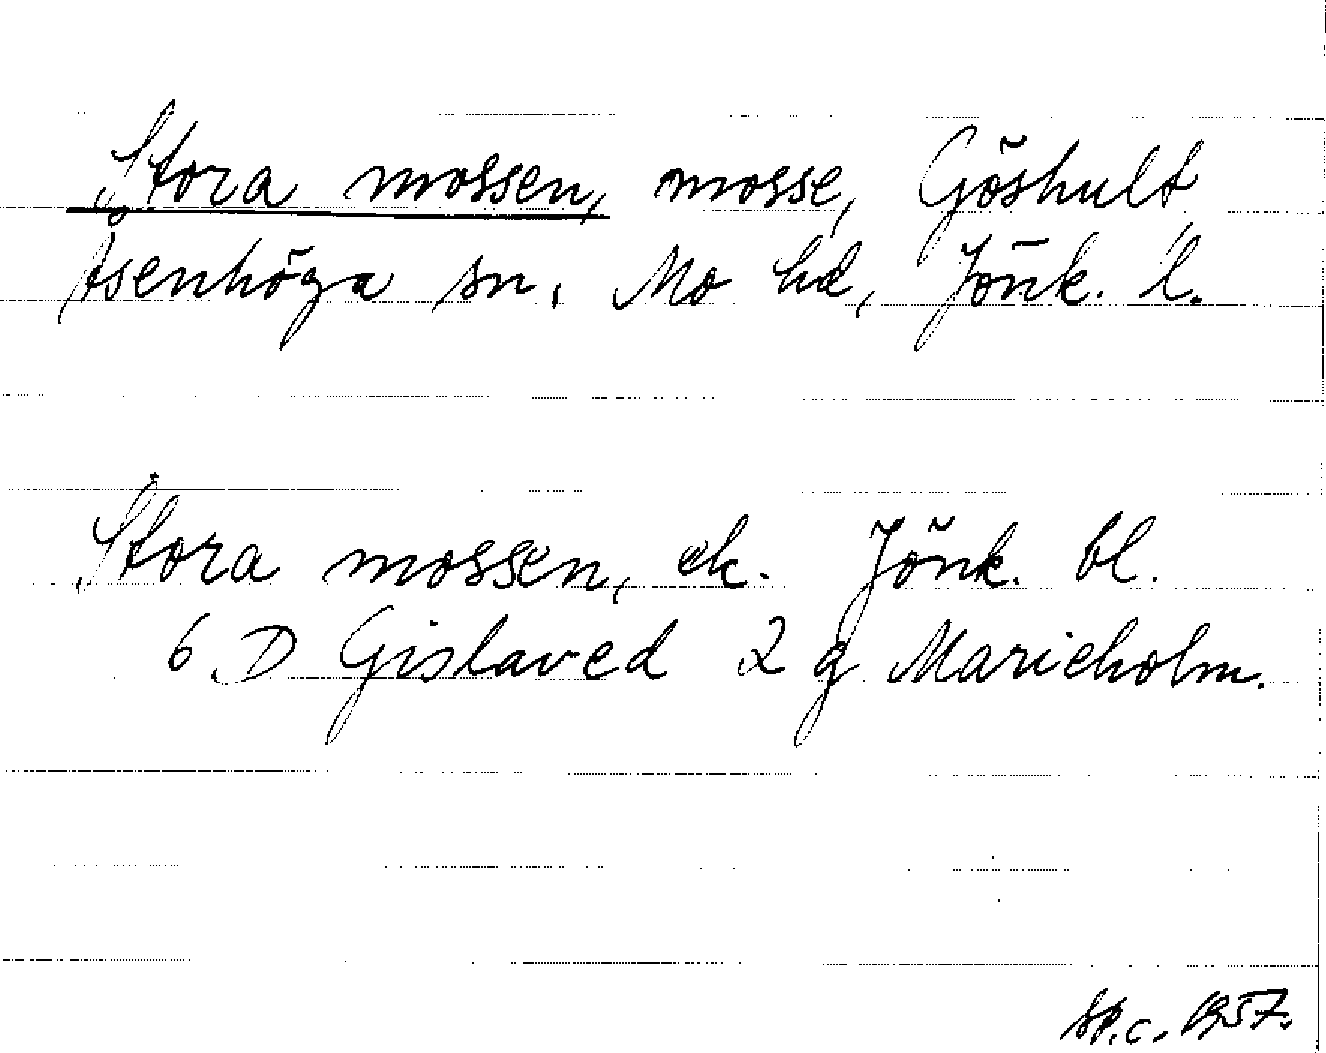 Stora mossen, mosse, Göshult
Åsenhöga sn, Mo hd, Jönk. l.
Stora mossen, ek. Jönk. bl.
6 D Gislaved 2 g Marieholm.
1957.